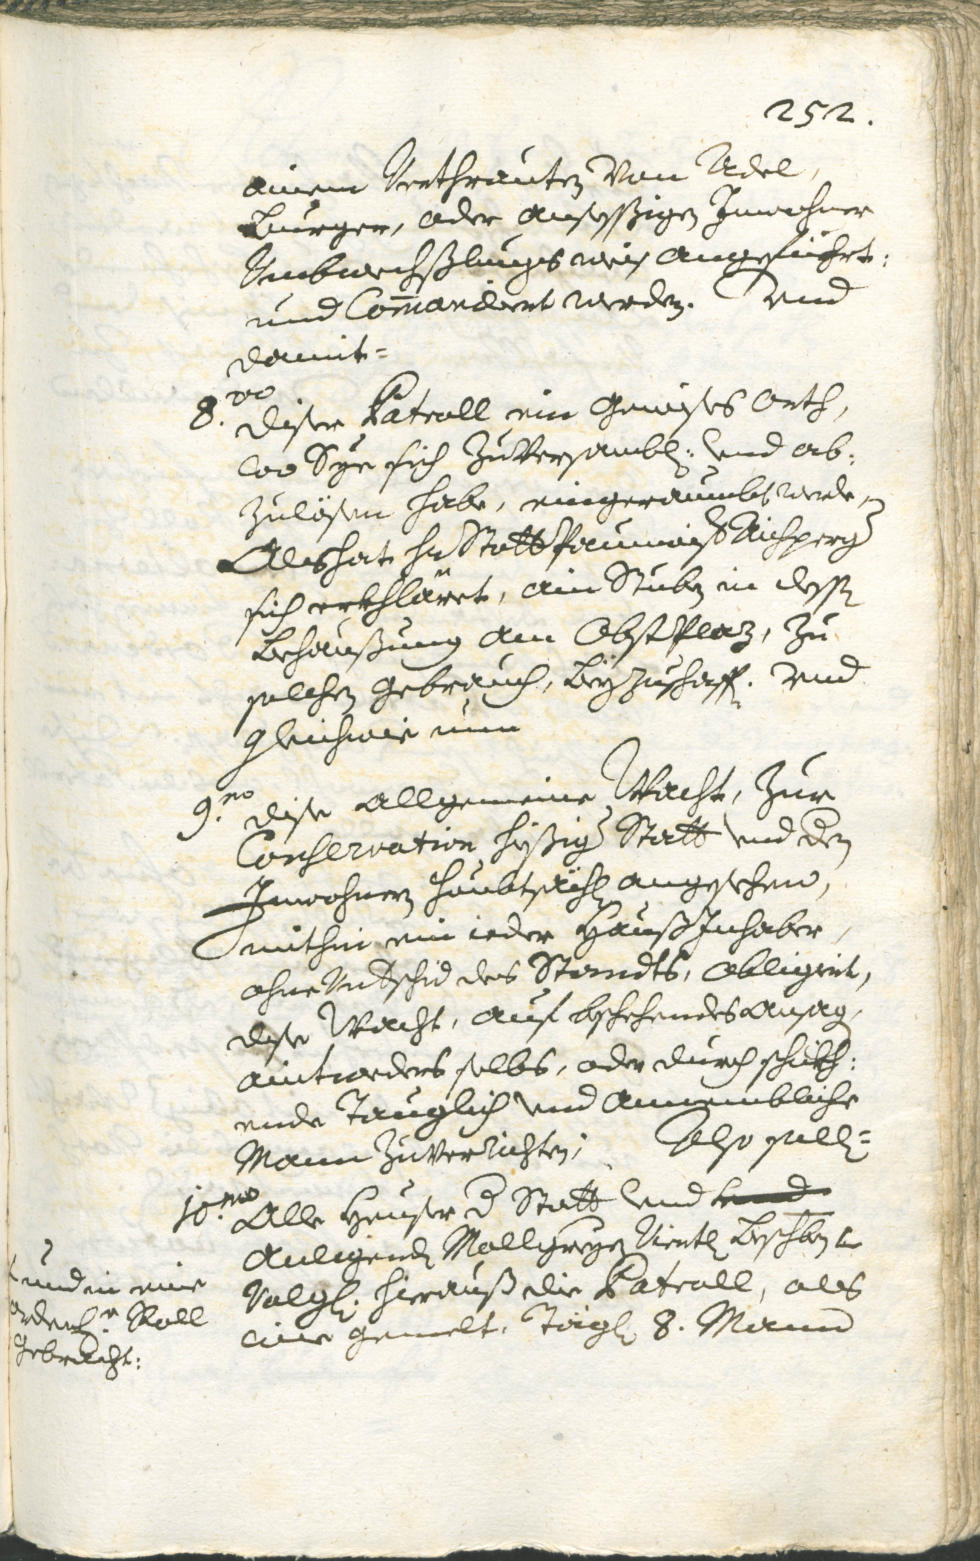 252.
ainem Verthrauten von Adel,
Burger, oder ansessigen Inwohner
Umbwechßlungs weis angeführt:
und Com̄andiert werden. Und
damit=
8.vo diser Patroll ein gewises orth,
wo Sye sich zuversambl: und ab:
zulösen habe, eingeraumbt werde,
Als hat hr Statt Paumeistr Aichperger
sich erkhläret, ain Stuben in dessen
Behaußung am Obst Plaz, zu
solchen gebrauch, beyzuschaffen. Und
gleichwie nun
9.no dise allgemeine Wacht, zur
Conservation hiesiger Statt und den
Inwohnern haubtsächl angesehen,
mithin ein ieder Hauß Inhaber,
ohne Untschid des Standts, obligiert,
dise Wacht, auf beschehendes ansag,
aintweders selbs, oder durch schickh:
ende tauglich und annembliche
Mann zuverrichten; Also sollen=
10.mo Alle Heuser d Statt und
anligenden Mollgreyen Viertl beschriben
Volgl: hierauß die Patroll, als
wie gemelt, tägl 8. Mann
und in eine
ordenl.e Roll
gebracht: